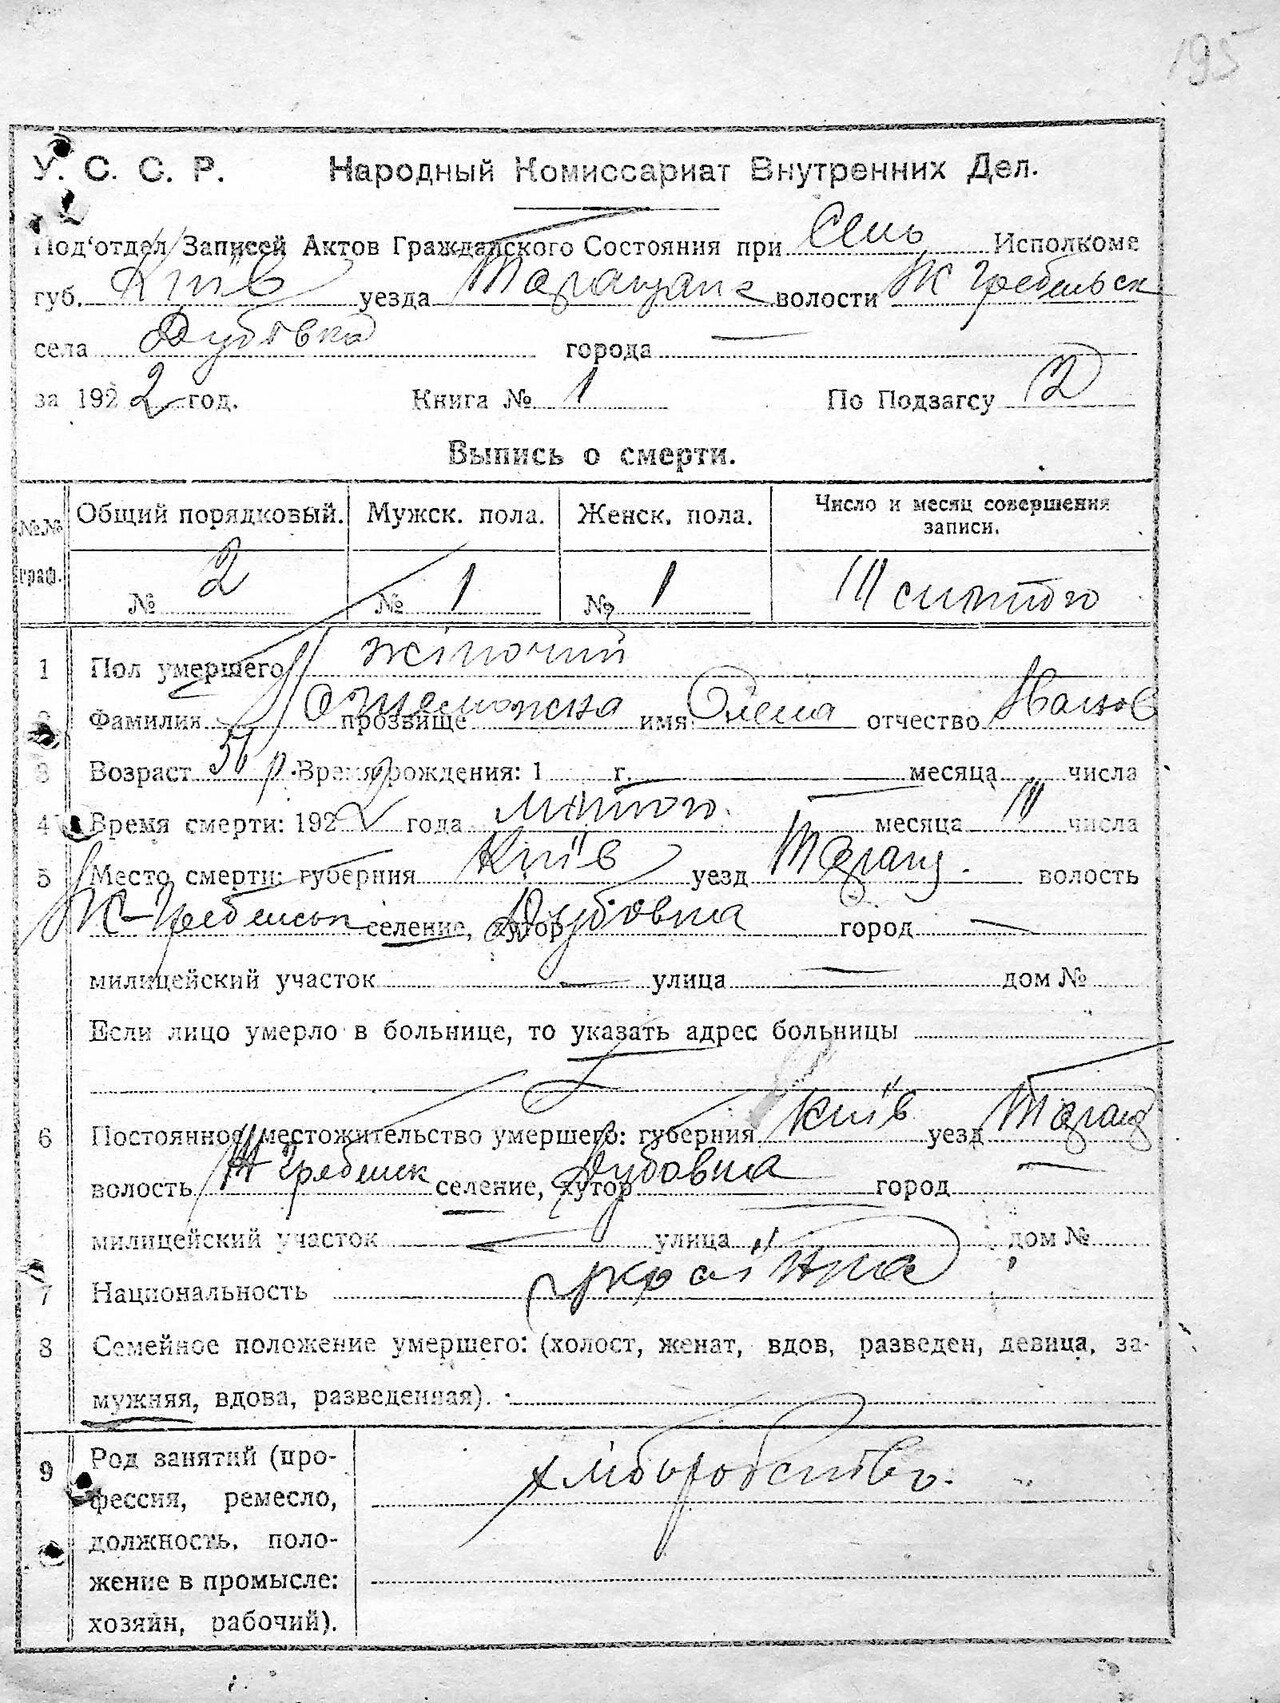 195
У. С. С. Р. Народный Комиссариат Внутренних Дел.
Под'отдел Записей Актов Гражданского Состояния при Сель Исполкоме
губ. Київ уезда Таращан волости Ж Гребельск
села Дубовка города —
за 1922 год. Книга № 1 По Подзагсу 2
Выпись о смерти.
№№ граф. Общий порядковый. Мужск. пола. Женск. пола. Число и месяц совершения записи.
№ 2 № 1 № 1 III лютого
1 Пол умершего жіночий
2 Фамилия прозвище имя Олена отчество Иванов
3 Возраст 50 р. Время рождения: 1 г. — месяца " числа
4 Время смерти: 1922 года лютого месяца III числа
5 Место смерти: губерния Київ уезд Таращ. волость
Ж-Гребельськ селение, хутор Дубовка город —
милицейский участок — улица — дом №
Если лицо умерло в больнице, то указать адрес больницы
6 Постоянное местожительство умершего: губерния Київ уезд Таращ
волость Ж Гребельск селение, хутор Дубовка город —
милицейский участок — улица " дом №
7 Национальность українка
8 Семейное положение умершего: (холост, женат, вдов, разведен, девица, за-
мужняя, вдова, разведенная).
9 Род занятий (про- хліборобство.
фессия, ремесло,
должность, поло-
жение в промысле:
хозяин, рабочий).